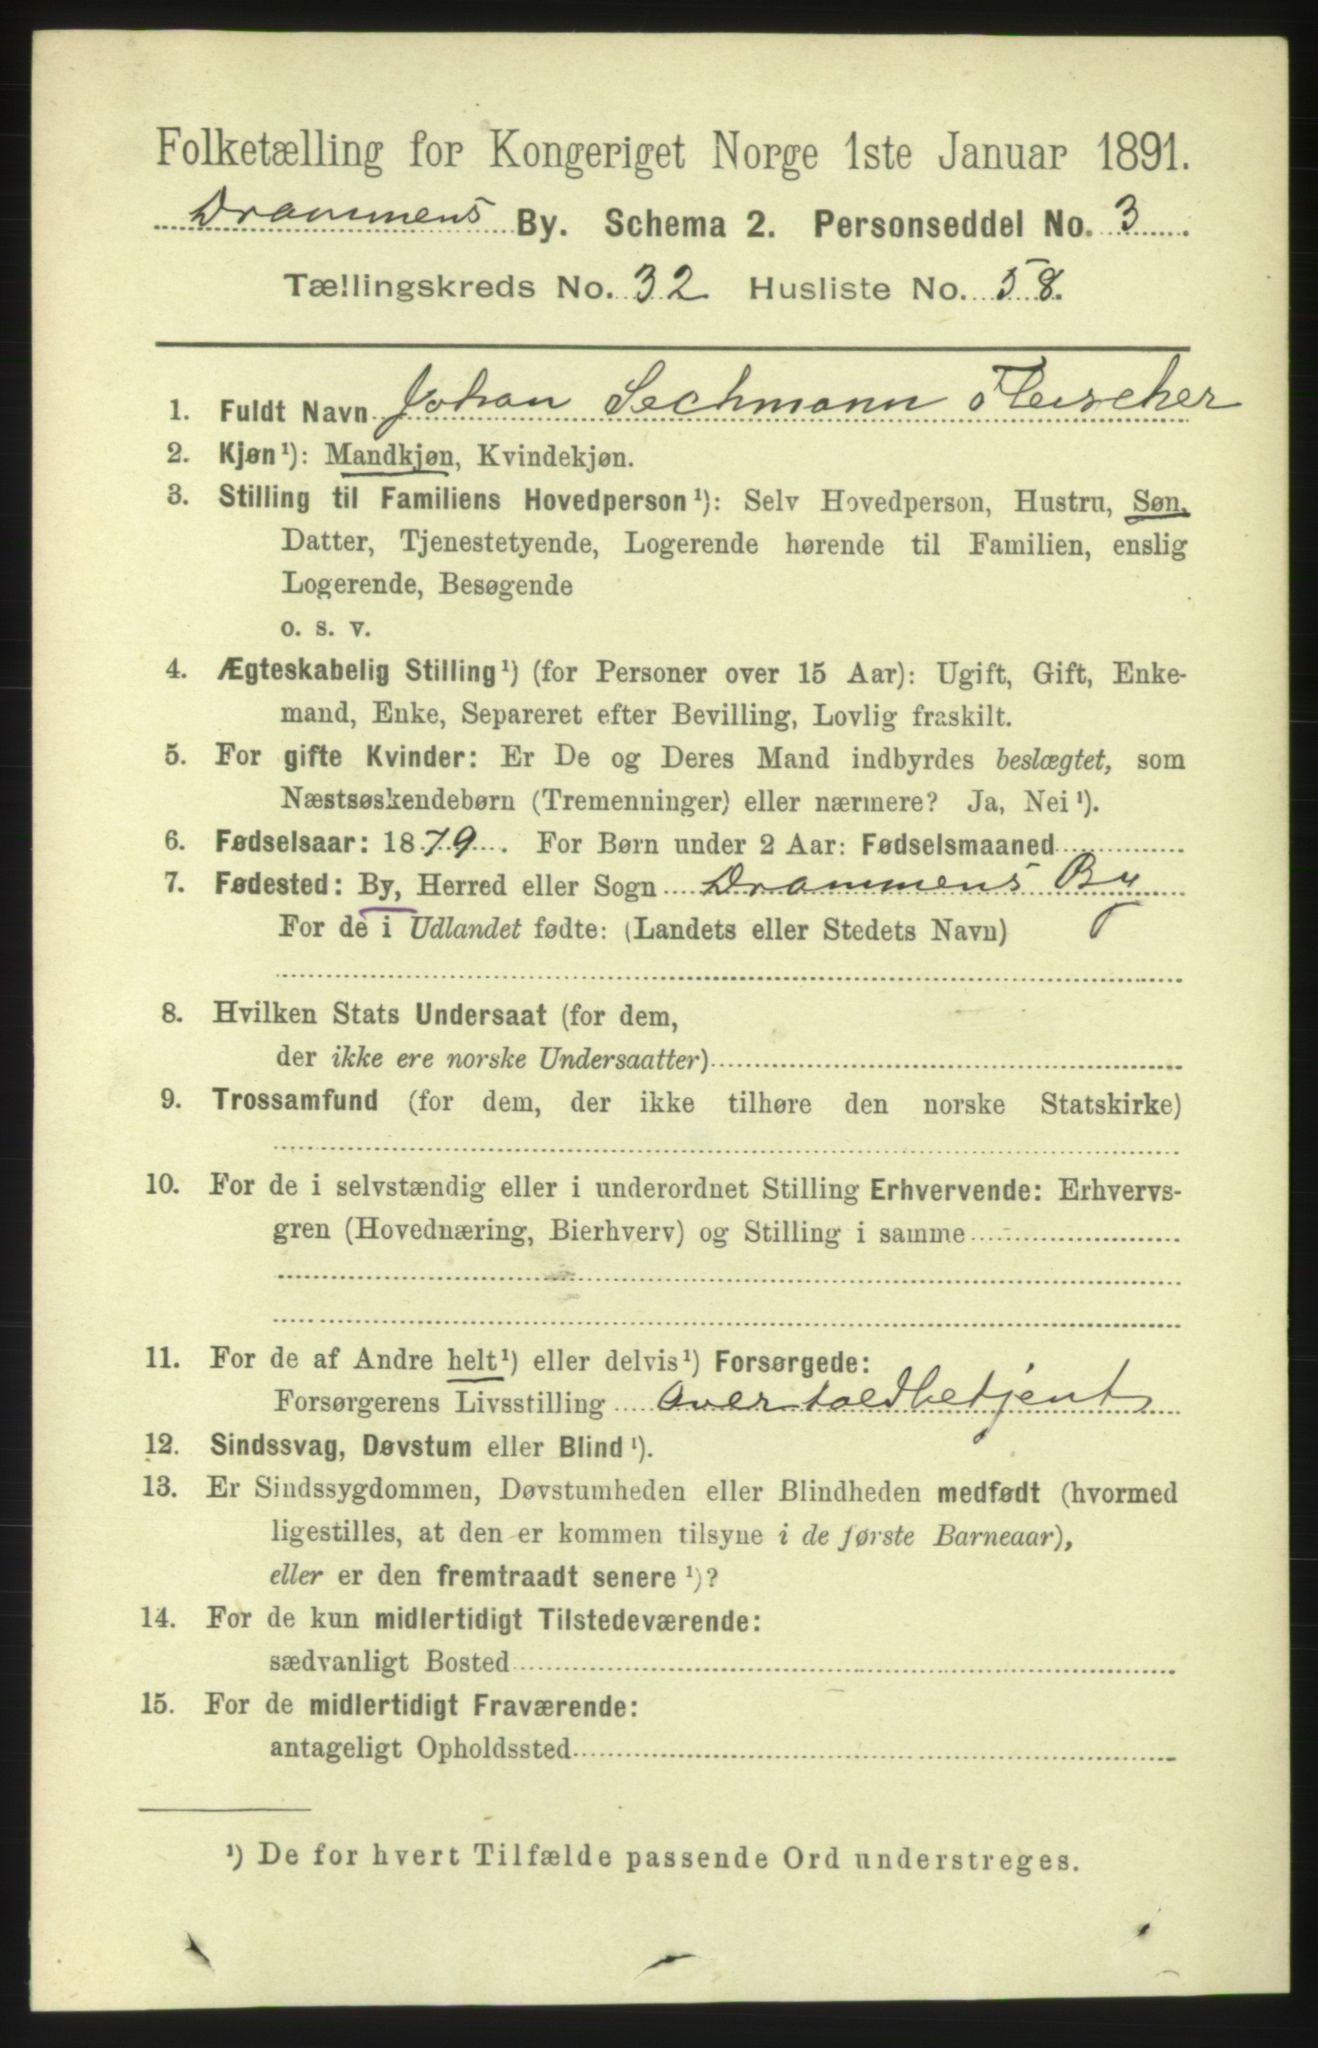 Folketælling for Kongeriget Norge 1ste Januar 1891.
Drammens By. Schema 2. Personseddel No. 3.
Tællingskreds No. 32 Husliste No. 58.
1. Fuldt Navn Johan Sechmann Fleischer
2. Kjøn¹): Mandkjøn, Kvindekjøn.
3. Stilling til Familiens Hovedperson¹): Selv Hovedperson, Hustru, Søn,
Datter, Tjenestetyende, Logerende hørende til Familien, enslig
Logerende, Besøgende
o. s. v.
4. Ægteskabelig Stilling¹) (for Personer over 15 Aar): Ugift, Gift, Enke-
mand, Enke, Separeret efter Bevilling, Lovlig fraskilt.
5. For gifte Kvinder: Er De og Deres Mand indbyrdes beslægtet, som
Næstsøskendebørn (Tremenninger) eller nærmere? Ja, Nei¹).
6. Fødselsaar: 1879. For Børn under 2 Aar: Fødselsmaaned
7. Fødested: By, Herred eller Sogn Drammens By
For de i Udlandet fødte: (Landets eller Stedets Navn)
8. Hvilken Stats Undersaat (for dem,
der ikke ere norske Undersaatter)
9. Trossamfund (for dem, der ikke tilhøre den norske Statskirke)
10. For de i selvstændig eller i underordnet Stilling Erhvervende: Erhvervs-
gren (Hovednæring, Bierhverv) og Stilling i samme
11. For de af Andre helt¹) eller delvis¹) Forsørgede:
Forsørgerens Livsstilling Overtoldbetjent
12. Sindssvag, Døvstum eller Blind¹).
13. Er Sindssygdommen, Døvstumheden eller Blindheden medfødt (hvormed
ligestilles, at den er kommen tilsyne i de første Barneaar),
eller er den fremtraadt senere¹)?
14. For de kun midlertidigt Tilstedeværende:
sædvanligt Bosted
15. For de midlertidigt Fraværende:
antageligt Opholdssted
¹) De for hvert Tilfælde passende Ord understreges.